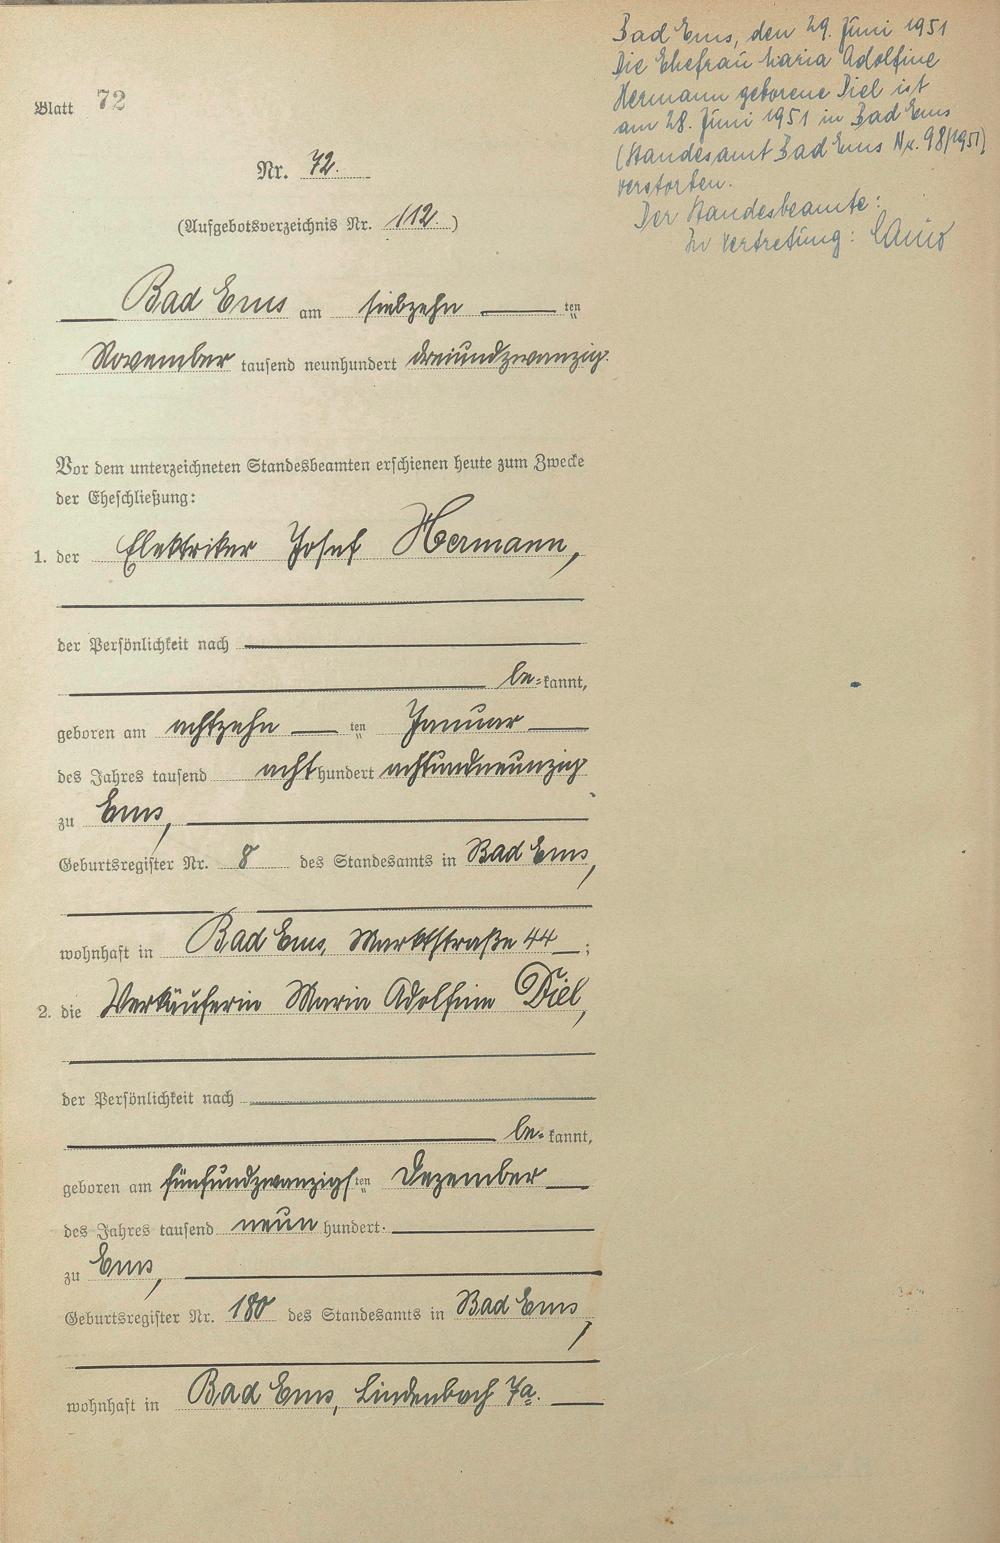 Blatt 72
Nr. 72.
(Aufgebotsverzeichnis Nr. 112)
Bad Ems am siebzehn ten
November tausend neunhundert dreiundzwanzig.
Vor dem unterzeichneten Standesbeamten erschienen heute zum Zwecke
der Eheschließung:
1. der Elektriker Josef Hermann,
der Persönlichkeit nach
be=kannt,
geboren am achtzehn ten Januar
des Jahres tausend acht hundert achtundneunzig
zu Ems,
Geburtsregister Nr. 8 des Standesamts in Bad Ems,
wohnhaft in Bad Ems, Marktstraße 44 ;
2. die Verkäuferin Maria Adolfine Diel,
der Persönlichkeit nach
be=kannt,
geboren am fünfundzwanzigsten Dezember
des Jahres tausend neun hundert.
zu Ems,
Geburtsregister Nr. 180 des Standesamts in Bad Ems,
wohnhaft in Bad Ems, Lindenbach 7a.
Bad Ems, den 29. Juni 1951
Die Ehefrau Maria Adolfine
Hermann geborene Diel ist
am 28. Juni 1951 in Bad Ems
(Standesamt Bad Ems Nr. 98/1951)
verstorben.
Der Standesbeamte:
In Vertretung: